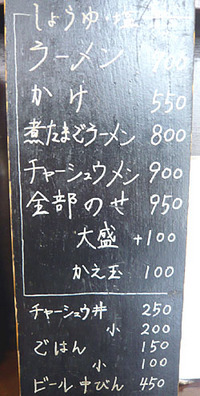 しょうゆ・塩
ラーメン 700
かけ 550
煮たまごラーメン 800
チャーシュウメン 900
全部のせ 950
大盛 +100
かえ玉 100
チャーシュウ丼 250
小 200
ごはん 150
小 100
ビール中びん 450